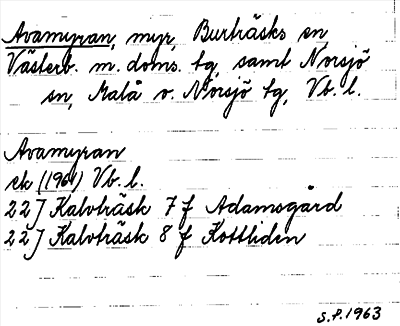 Avamyran, myr, Burträsks sn
Västerb. m. doms. tg, samt Norsjö
sn, Malå o. Norsjö tg, Vb. l.
Avamyran
ek (1961) Vb. l.
22J Kalvträsk 7 f Adamsgård
22J Kalvträsk 8 f Kottliden
S.P. 1963